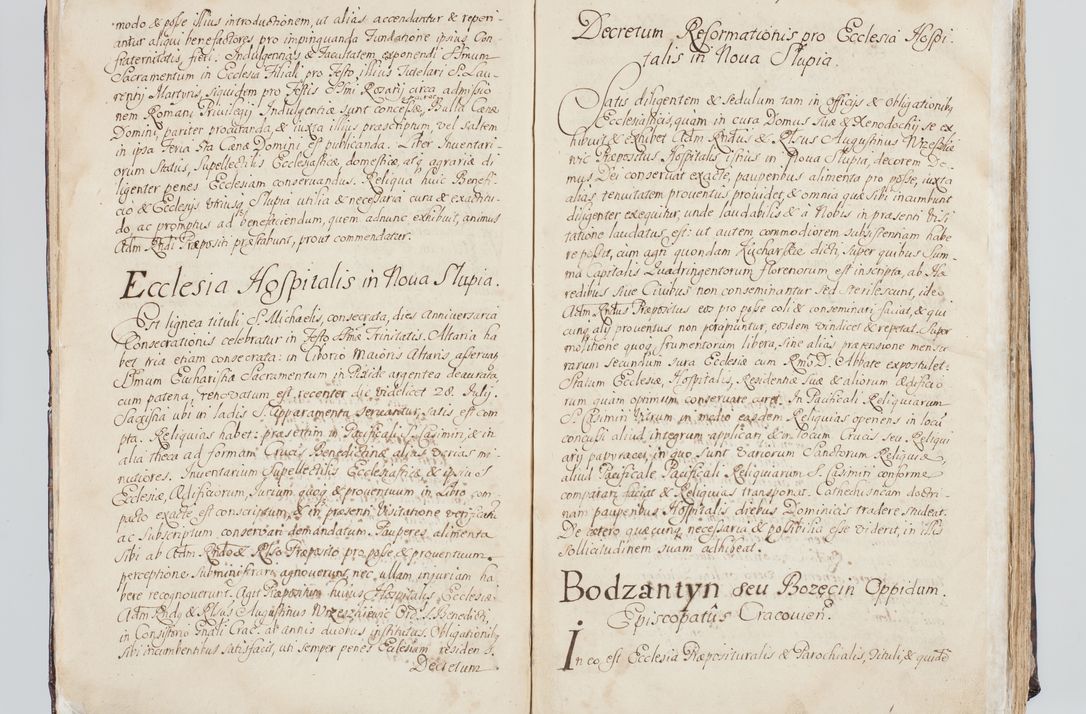 modo & posse illius introductionem, ut alias accendantur & reperi-
antur aliqui benefactores pro impinguanda Fundatione ipsius Con
fraternitatis, fieti. Indulgentias & Facultatem exponendi SSmum
Sacramentum in Ecclesia Filiali pro Festo illius Tutelari S. Lau-
rentij Martyris, siquidem pro Festis SSmi Rosarij circa admissio
nem Romani Privilegij Indulgentiæ sunt concessæ, Bulla Cænæ
Domini pariter procuranda, & iuxta illius præscriptum, vel saltem
in ipsa Feria 5ta Cænæ Domini est publicanda. Liber Inventari-
orum Status, Supellectilis Ecclesiasticæ, domesticæ, atq agrariæ di
ligenter penes Ecclesiam conservandus. Reliqua huic Benefi-
cio & Ecclesijs utriusq Slupia utilia & necessaria cura & exactitu-
do ac promptus ad benefaciendum, quem adhunc exhibuit, animus
Adm. Rndi Præpositi præstabunt, prout commendatur.
Ecclesia Hospitalis in Nova Slupia.
Est lignea tituli S. Michaelis, consecrata, dies Anniversaria
Consecrationis celebratur in Festo SSmæ Trinitatis. Altaria ha
bet tria etiam consecrata: in Ciborio maioris Altaris, asservat
SSmum Eucharistiæ Sacramentum in Pixide argentea deaurata,
cum patena, renovatum est recenter die videlicet 28. Julij.
Sacristia ubi in ladis S. Apparamenta servantur, satis est com
pta. Reliquias habet: præsertim in Pacificali S. Casimiri, & in
alia theca ad formam Crucis Benedictinæ alias varias mi
nutiores. Inventarium Supellectilis Ecclesiasticæ & ipsius
Ecclesiæ, Ædificiorum, Jurium quoq & proventuum in Libro com
pacto exacte est conscriptum, & in præsenti Visitatione verificatu
ac Subscriptum conservari demandatum. Pauperes alimenta
sibi ab Adm. Rndo & Rlso Præposito pro posse & proventuum
perceptione subministrari agnoverunt, nec ullam injuriam ha
bere recognoverunt. Agit Præpositum huius Hospitalis Ecclesiæ
Adm. Rndg & Rlsus Augustinus Wrzeszniewic Ord. S. Benedicti,
in Consistorio Gnali Crac. ab annis duobus institutus, Obligationib
sibi incumbentibus satisfacit, uti semper penes Ecclesiam residens.
Decretum
Decretum Reformationis pro Ecclesia Hospi-
talis in Nova Slupia.
Satis diligentem & sedulum tam in officijs & obligationib
Ecclesiasticis, quam in cura Domus suæ & Xenodochij se ex
hibuit & exhibet Adm. Rndus & Rlsus Augustinus
Præpositus Hospitalis istius in Nova Slupia, decorem Do
mus Dei conservat exacte, pauperibus alimenta pro posse, iuxta
alias tenuitatem proventus providet, & omnia quæ sibi incumbunt
diligenter exequitur, unde laudabilis & à Nobis in præsenti Visi
tatione laudatus est: ut autem commodiorem subsistentiam habe
re possit, cum agri quondam Kucharskie dicti, super quibus Sum
ma Capitalis Quadringentorum florenorum est inscripta, ab Hæ
redibus sive Civibus non conseminantur sed sterilescunt, ideo
Adm. Rndus Præpositus eos pro posse coli & conseminari faciat, & qui
cunq alij proventus non percipiuntur, eosdem vindicet & repetat. Super
molitione quoq frumentorum libera, sine alias prætensione mensu
rarum secundum jura Ecclesiæ cum Rmo D. Abbate expostulet.
Statum Ecclesiæ, Hospitalis, Residentiæ suæ & aliorum ædificio
rum quam optimum conservare curet. In Pacificali Reliquiarum
S. Casimiri Vitrum in medio earumdem Reliquias operiens in locu
concussi aliud integrum applicari, & in locum Crucis seu Reliqui
arij papyracei, in quo sunt variorum Sanctorum Reliquiæ,
aliud Pacificale Pacificali Reliquiarum S. Casimiri conforme
comparari faciat & Reliquias transponat. Catechisticam doctri
nam pauperibus Hospitalis diebus Dominicis tradere studeat.
De cætero quæcunq necessaria & possibilia esse viderit, in illis
sollicitudinem suam adhibeat.
Bodzantyn seu Bozęcin Oppidum.
Episcopatûs Cracovien.
In eo, est Ecclesia Præpositurális & Parochialis, tituli, & quidē